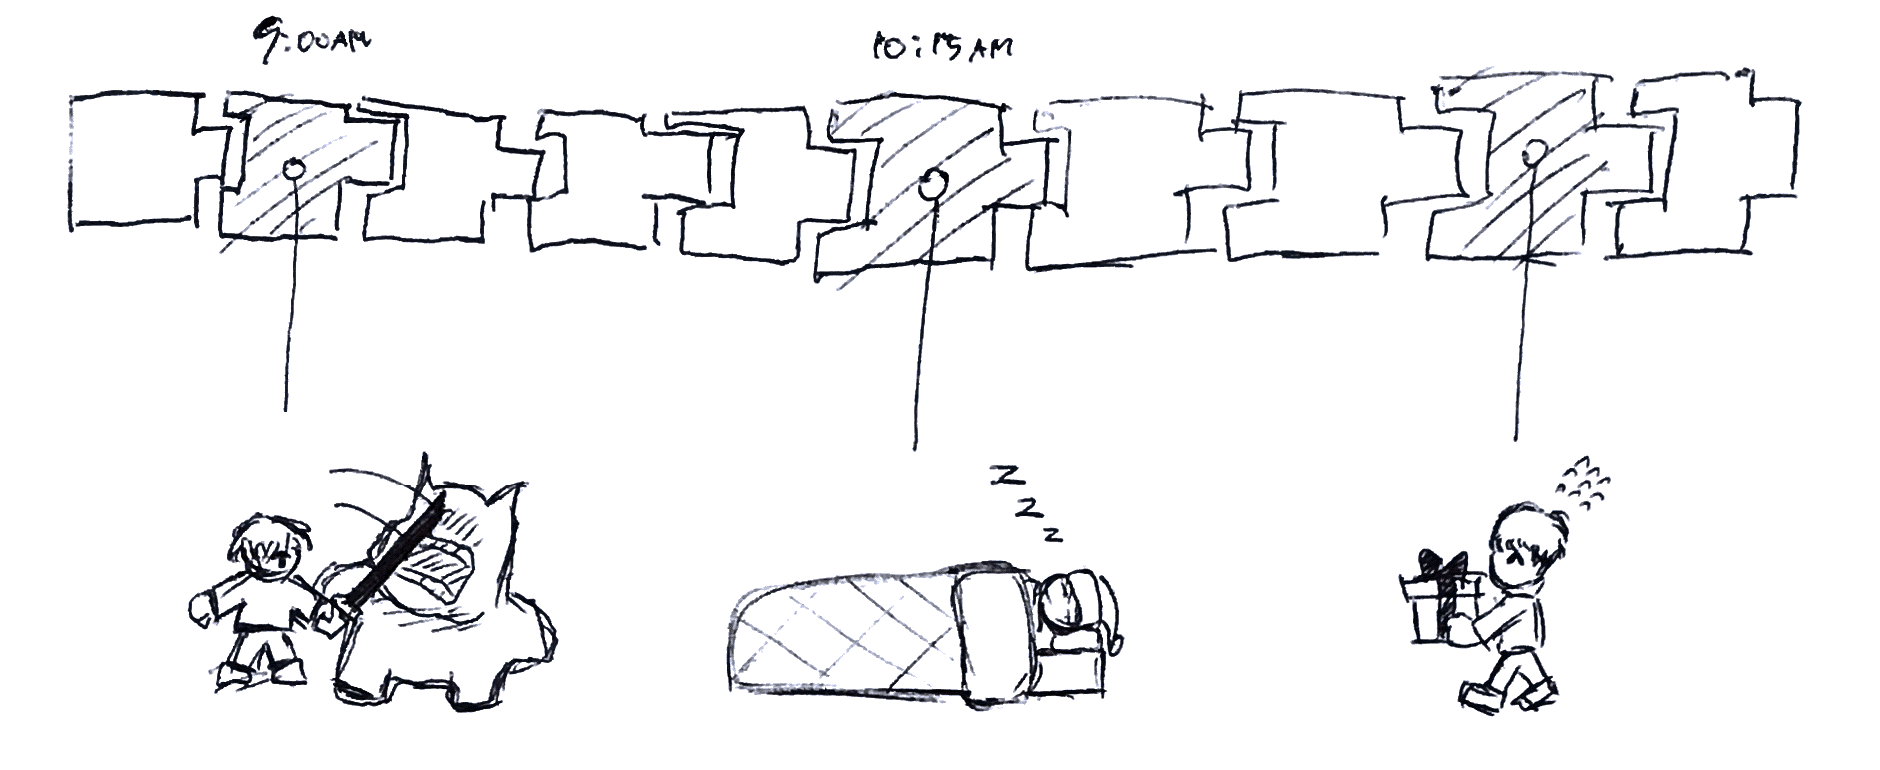 9:00AM
10:15AM
Z
Z
Z